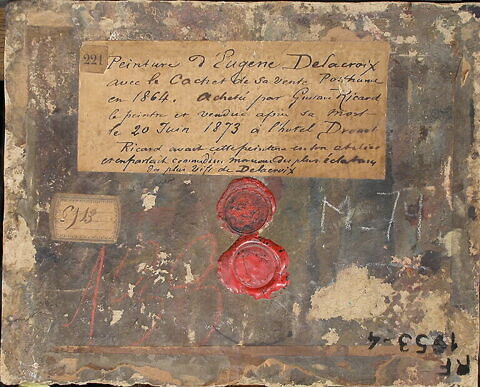 221
Peinture d'Eugene Delacroix
avec le Cachet de sa vente Posthume
en 1864. acheté par Gustave Ricard
le peintre et vendue après sa mort
le 20 Juin 1873 à l'hotel Drouot
Ricard avait cette peinture en son atelier
et en parlait comme d'un morceau des plus éclatans
du plus vif de Delacroix
M-71
RF
1953-4